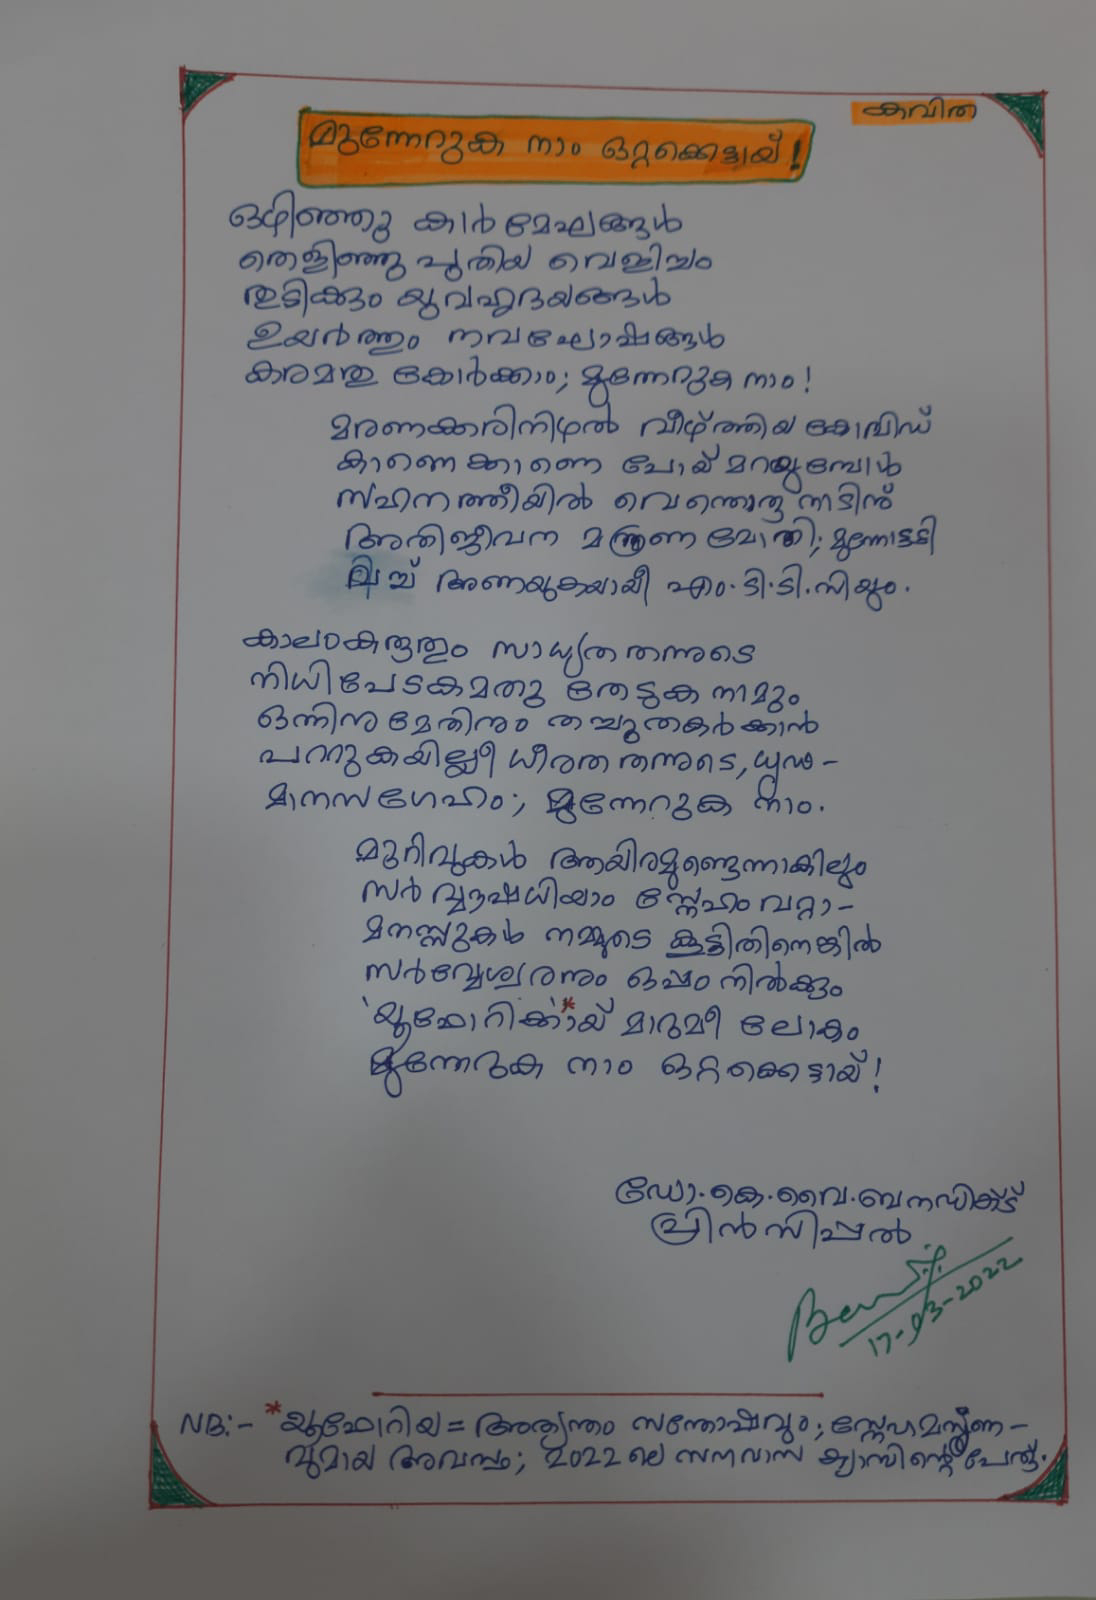 കവിത
മുന്നേറുക നാം ഒറ്റക്കെട്ടായ് !
ഒഴിഞ്ഞു കാർമേഘങ്ങൾ
തെളിഞ്ഞു പുതിയ വെളിച്ചം
തുടിക്കും യുവഹൃദയങ്ങൾ
ഉയർത്തും നവഘോഷങ്ങൾ
കരമതു കോർക്കാം; മുന്നേറുക നാം!
മരണക്കരിനിഴൽ വീഴ്ത്തിയ കോവിഡ്
കാണെക്കാണെ പോയ് മറയുമ്പോൾ
സ്ഹനത്തീയിൽ വെന്തൊരു നാടിന്
അതിജീവന മന്ത്രണമോതി; മുന്നോട്ടടി
വെച്ച് അണയുകയായീ എം.ടി.ടി.സിയും.
കാലംകരുതും സാധ്യത തന്നുടെ
നിധിപേടകമതു തേടുക നാമും
ഒന്നിനുമേതിനും തച്ചുതകർക്കാൻ
പററുകയില്ലീ ധീരത തന്നുടെ, ധൃഢ-
മാനസഗേഹം; മുന്നേറുക നാം.
മുറിവുകൾ ആയിരമുണ്ടെന്നാകിലും
സർവ്വൗഷധിയാം സ്നേഹം വറ്റാ-
മനസ്സുകൾ നമ്മുടെ കൂട്ടിതിനെങ്കിൽ
സർവ്വേശ്വരനും ഒപ്പം നിൽക്കും
'യൂഫോറിക്കാ'*യ് മാറുമീ ലോകം
മുന്നേറുക നാം ഒറ്റക്കെട്ടായ്!
ഡോ.കെ.വൈ.ബനഡിക്ട്
പ്രിൻസിപ്പൽ
17-03-2022
NB:- *യൂഫോറിയ = അത്യന്തം സന്തോഷവും; സ്നേഹമസൃണ-
വുമായ അവസ്ഥ; 2022 ലെ സഹവാസ ക്യാമ്പിന്റെ പേര്.